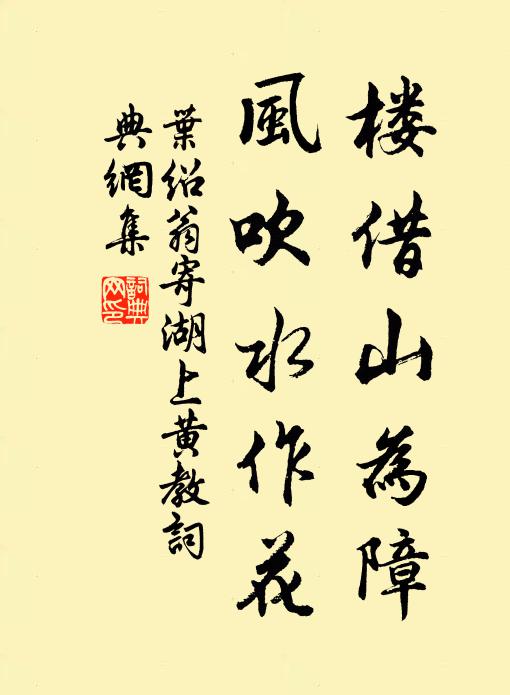 楼借山為障
風吹水作花
葉紹翁寄湖上黃教詞
典網集
詞典網印